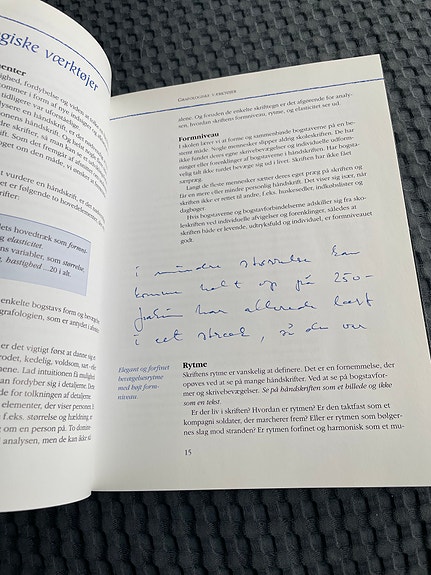 giske værktøjer
fordybelse og viden
sommer i form af nye
tidligere var uforståelige.
håndskrift, er det
håndskrift.
vurdere en håndskrift, er det
er følgende to hovedelementer
rifter:
dets hovedtræk som formni-
og elasticitet.
ens variabler, som størrelse,
hastighed ...20 i alt.
enkelte bogstavs form og bevæge
grafologien, som er anvist i afsnit
er det vigtigt først at danne sig e
rodet, kedelig, voldsom, sart - de
ne. Lad intuitionen få mulighed
an fordyber sig i detaljerne. Den
de for tolkningen af detaljerne
elementer, der viser personen i
f.eks. størrelse og hældning, er
om en person på. To domine
analysen, men de kan ikke stå
GRAFOLOGISKE VÆRKTØJER
alene. Og foruden de enkelte skrifttegn er det afgørende for analy-
sen, hvordan skriftens formniveau, rytme, og elasticitet ser ud.
Formniveau
I skolen lærer vi at forme og sammenbinde bogstaverne på en be-
stemt måde. Nogle mennesker slipper aldrig skoleskriften. De har
ikke fundet deres egne skrivebevægelser og individuelle udform-
ninger eller forenklinger af bogstaverne i håndskriften. Har bogsta-
velig talt ikke turdet bevæge sig ud i livet. Skriften har ikke fået
særpræg.
Langt de fleste mennesker sætter deres eget præg på skriften og
får en mere eller mindre personlig håndskrift. Det viser sig især, når
skriften ikke er rettet til andre. F.eks. huskesedler, indkøbslister og
dagbøger.
Hvis bogstaverne og bogstavforbindelserne adskiller sig fra sko-
leskriften ved individuelle afvigelser og forenklinger, således at
skriften både er levende, udtryksfuld og individuel, er formniveauet
godt.
i mindre størrelse kan
komme helt op på 250-
har allerede læst
i eet stræk, så du var
Elegant og forfinet
bevægelsesrytme
med højt form-
niveau.
Rytme
Skriftens rytme er vanskelig at definere. Det er en fornemmelse, der
opøves ved at se på mange håndskrifter. Ved at se på bogstavfor-
mer og skrivebevægelser. Se på håndskriften som et billede og ikke
som en tekst.
Er der liv i skriften? Hvordan er rytmen? Er den taktfast som et
kompagni soldater, der marcherer frem? Eller er rytmen som bølger-
nes slag mod stranden? Er rytmen forfinet og harmonisk som et mu-
15